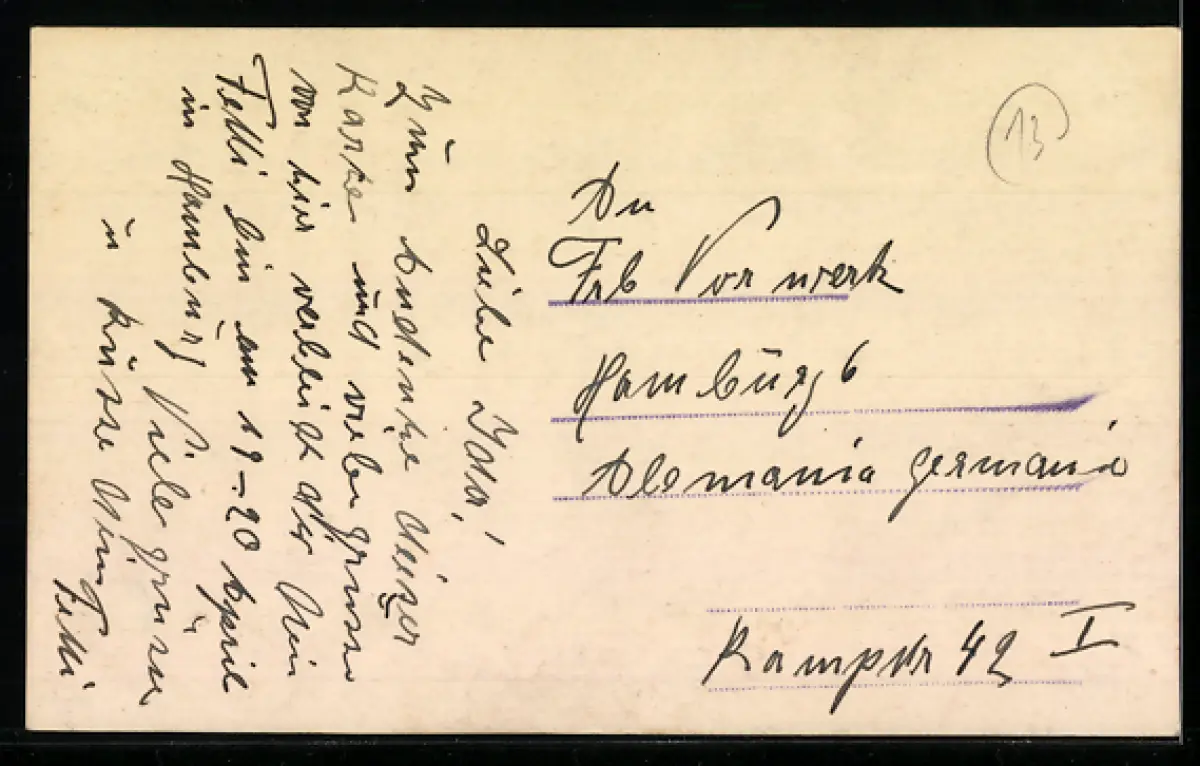 Liebe
Zum Andenke deiner
Karte und vielen grüsse
von hir verbleibt der Dein
Felli bin am 19-20 April
in Hamburg Viele grüsse
u Küsse Dein
Felli
13
An
Frl Vorwerk
Hamburg 6
Alemania germania
Kampstr 42 I